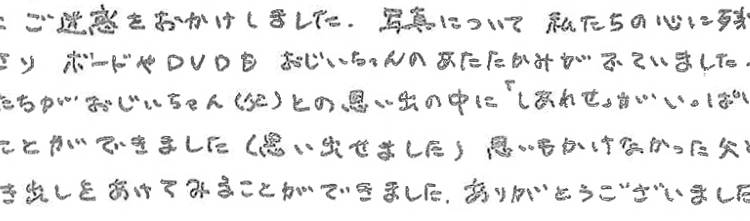 ご迷惑をおかけしました. 写真について 私たちの心に残
り ボードやDVDも おじいちゃんのあたたかみがでていました.
たちがおじいちゃん(父)との思い出の中に「しあわせ」がいっぱい
ことができました(思い出せました) 思いもかけなかった父
き出しをあけてみることができました. ありがとうございました